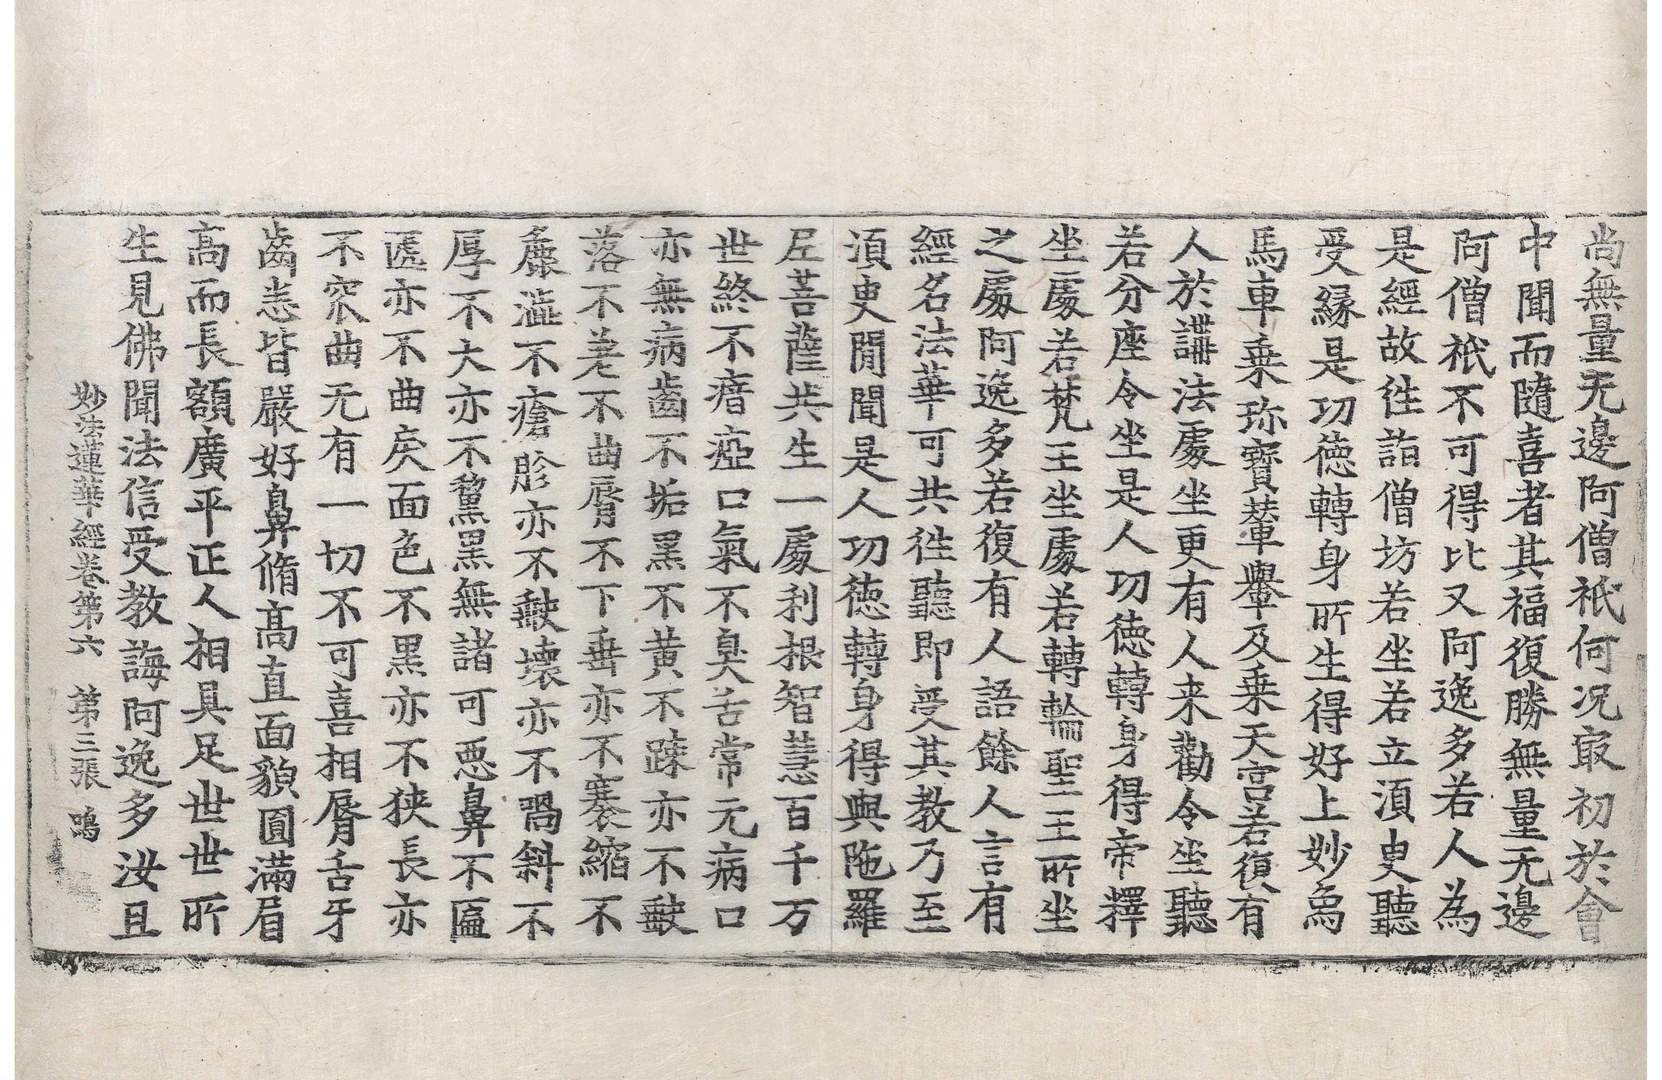 尚無量无邊阿僧祇何况冣初於會
中聞而隨喜者其福復勝無量无邊
阿僧祇不可得比又阿逸多若人為
是經故往詣僧坊若坐若立湏㬰聽
受緣是功徳轉身所生得好上妙象
馬車乗珎寳輦轝及乗天宮若復有
人於講法處坐更有人来勸令坐聽
若分座令坐是人功徳轉身得帝釋
坐處若梵王坐處若轉輪聖王所坐
之處阿逸多若復有人語餘人言有
經名法華可共徃聽即受其教乃至
湏㬰閒聞是人功徳轉身得與陁羅
尼菩薩共生一處利根智慧百千万
世終不瘖瘂口氣不臭舌常无病口
亦無病齒不垢黑不黄不踈亦不𡙇
落不差不曲脣不下垂亦不褰縮不
麁澁不瘡胗亦不𡙇壞亦不喎斜不
厚不大亦不黧黒無諸可悪鼻不匾
㔸亦不曲戾面色不黒亦不狹長亦
不窊曲无有一切不可喜相脣舌牙
齒悉皆嚴好鼻脩髙直面貌圓滿眉
髙而長額廣平正人相具足世世所
生見佛聞法信受教誨阿逸多汝且
妙法蓮華經卷第六 第三張 鳴